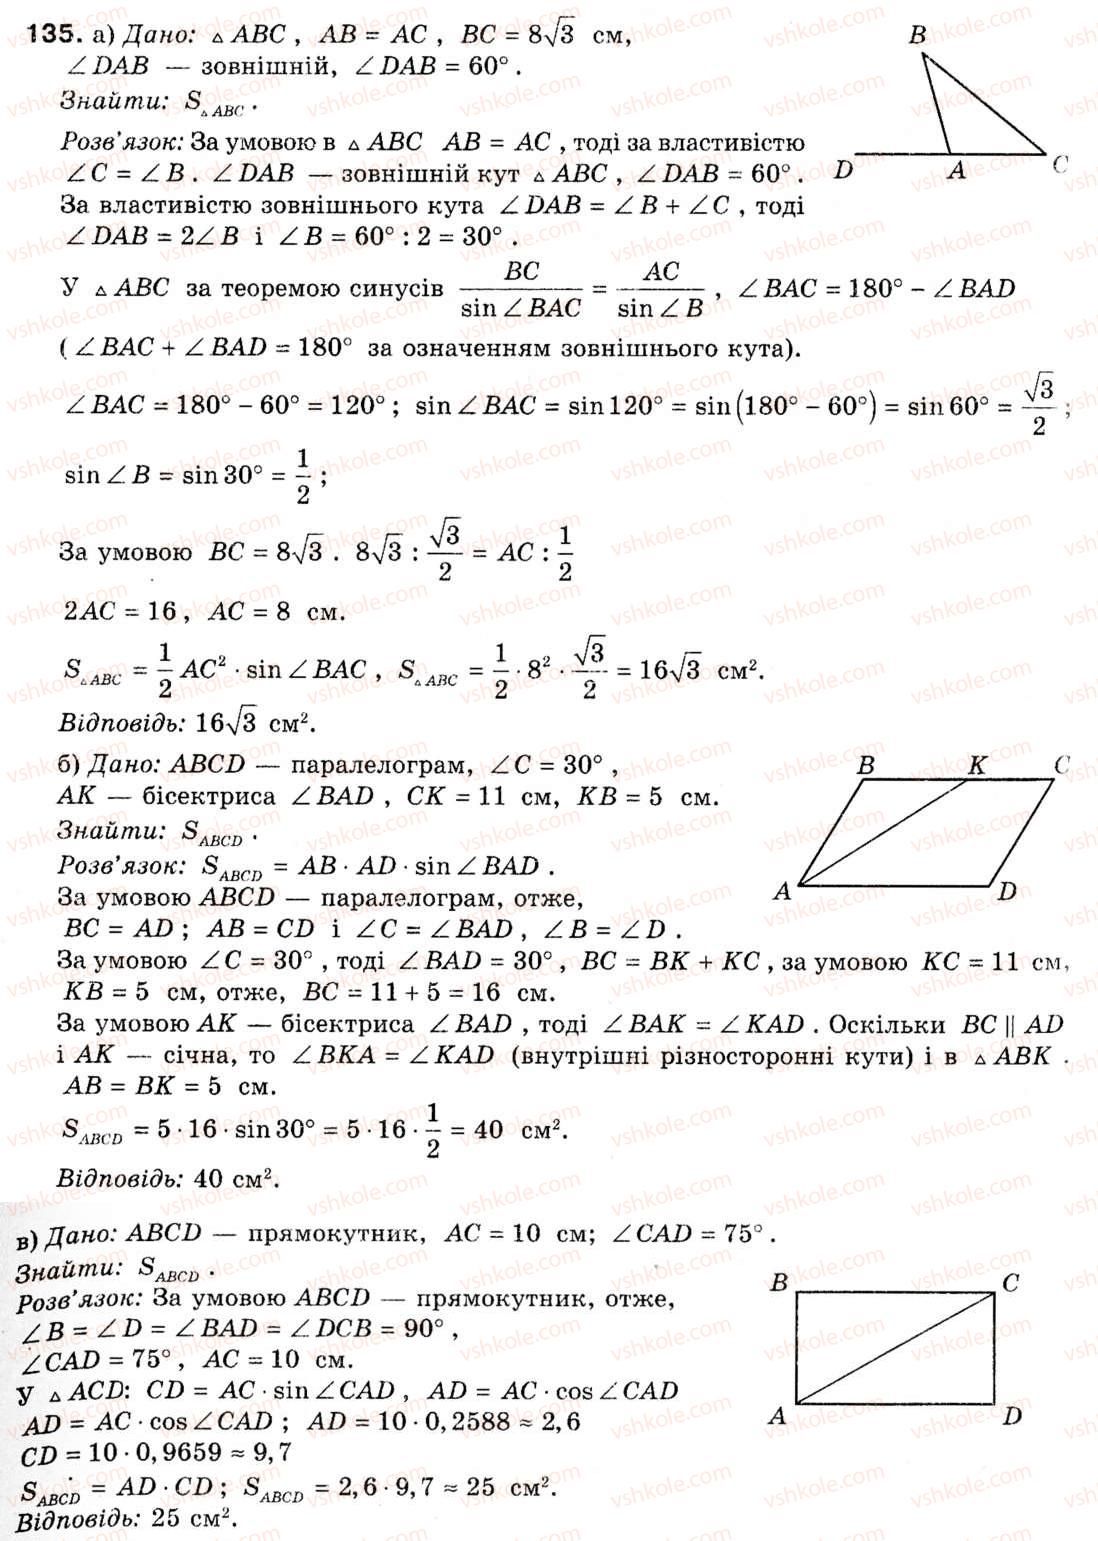 135. а) Дано: △ ABC , AB = AC , BC = 8√3 см,
∠DAB — зовнішній, ∠DAB = 60° .
Знайти: S△ABC .
B
D A C
Розв'язок: За умовою в △ ABC AB = AC , тоді за властивістю
∠C = ∠B . ∠DAB — зовнішній кут △ ABC , ∠DAB = 60° .
За властивістю зовнішнього кута ∠DAB = ∠B + ∠C , тоді
∠DAB = 2∠B і ∠B = 60° : 2 = 30° .
У △ ABC за теоремою синусів BC/sin∠BAC = AC/sin∠B , ∠BAC = 180° − ∠BAD
( ∠BAC + ∠BAD = 180° за означенням зовнішнього кута).
∠BAC = 180° − 60° = 120° ; sin∠BAC = sin120° = sin(180° − 60°) = sin60° = √3/2 ;
sin∠B = sin30° = 1/2 ;
За умовою BC = 8√3 . 8√3 : √3/2 = AC : 1/2
2AC = 16 , AC = 8 см.
S△ABC = 1/2 AC² · sin∠BAC , S△ABC = 1/2 · 8² · √3/2 = 16√3 см².
Відповідь: 16√3 см².
б) Дано: ABCD — паралелограм, ∠C = 30° ,
AK — бісектриса ∠BAD , CK = 11 см, KB = 5 см.
Знайти: SABCD .
B K C
A D
Розв'язок: SABCD = AB · AD · sin∠BAD .
За умовою ABCD — паралелограм, отже,
BC = AD ; AB = CD і ∠C = ∠BAD , ∠B = ∠D .
За умовою ∠C = 30° , тоді ∠BAD = 30° , BC = BK + KC , за умовою KC = 11 см,
KB = 5 см, отже, BC = 11 + 5 = 16 см.
За умовою AK — бісектриса ∠BAD , тоді ∠BAK = ∠KAD . Оскільки BC || AD
і AK — січна, то ∠BKA = ∠KAD (внутрішні різносторонні кути) і в △ ABK .
AB = BK = 5 см.
SABCD = 5 · 16 · sin30° = 5 · 16 · 1/2 = 40 см².
Відповідь: 40 см².
в) Дано: ABCD — прямокутник, AC = 10 см; ∠CAD = 75° .
Знайти: SABCD .
B C
A D
Розв'язок: За умовою ABCD — прямокутник, отже,
∠B = ∠D = ∠BAD = ∠DCB = 90° ,
∠CAD = 75° , AC = 10 см.
У △ ACD: CD = AC · sin∠CAD , AD = AC · cos∠CAD
AD = AC · cos∠CAD ; AD = 10 · 0,2588 ≈ 2,6
CD = 10 · 0,9659 ≈ 9,7
SABCD = AD · CD ; SABCD = 2,6 · 9,7 ≈ 25 см².
Відповідь: 25 см².
vshkole.com